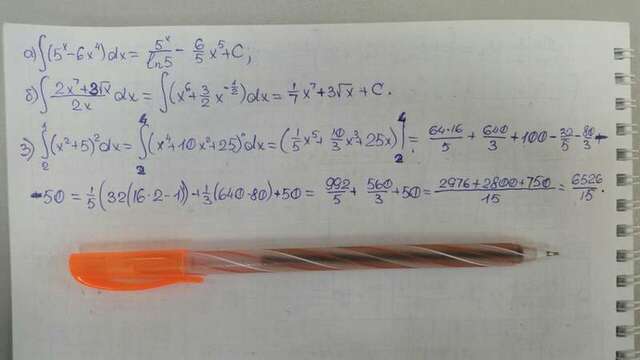 а) ∫(5ˣ-6x⁴)dx = 5ˣ/ln5 - 6/5 x⁵+C;
б) ∫ (2x⁷+3√x)/2x dx = ∫(x⁶+3/2 x^(-1/2))dx = 1/7 x⁷+3√x + C.
3) ∫₂⁴(x²+5)²dx = ∫₂⁴(x⁴+10x²+25)dx = (1/5 x⁵+10/3 x³+25x)|₂⁴ = 64·16/5 + 640/3 +100 - 32/5 - 80/3 -
-50 = 1/5(32(16·2-1))+1/3(640-80)+50 = 992/5 + 560/3 +50 = (2976+2800+750)/15 = 6526/15.